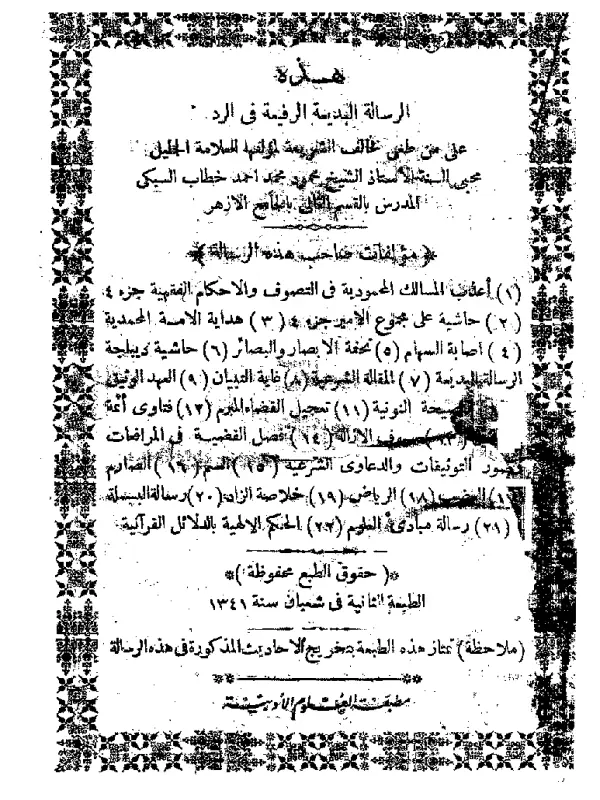 هذه
الرسالة البديعة الرفيعة فى الرد
على من طغى فخالف الشريعة لمؤلفها العلامة الجليل
محيى السنة الأستاذ الشيخ محمود محمد احمد خطاب السبكى
المدرس بالقسم العالى بالجامع الازهر
﴿ مؤلفات صاحب هذه الرسالة ﴾
(١) أعذب المسالك المحمودية فى التصوف والاحكام الفقهية جزء ٤
(٢) حاشية على مجموع الامير جزء ٤ (٣) هداية الامة المحمدية
(٤) اصابة السهام (٥) تحفة الابصار والبصائر (٦) حاشية ديباجة
الرسالة البديعة (٧) المقالة الشرعية (٨) غاية التبيان (٩) العهد الوثيق
النصيحة النونية (١١) تعجيل القضاء المبرم (١٢) فتاوى أئمة
سيوف الازالة (١٤) فصل القضية فى المرافعات
وصور التوثيقات والدعاوى الشرعية (١٥) السم (١٦) الصارم
(١٨) الرياض (١٩) خلاصة الزاد (٢٠) رسالة البسملة
(٢١) رسالة مبادئ العلوم (٢٢) الحكم الالهية بالدلائل القرآنية
*( حقوق الطبع محفوظة )*
الطبعة الثانية فى شعبان سنة ١٣٤١
(ملاحظة) تمتاز هذه الطبعة بتخريج الاحاديث المذكورة فى هذه الرسالة
مطبعة العلوم الأدبية